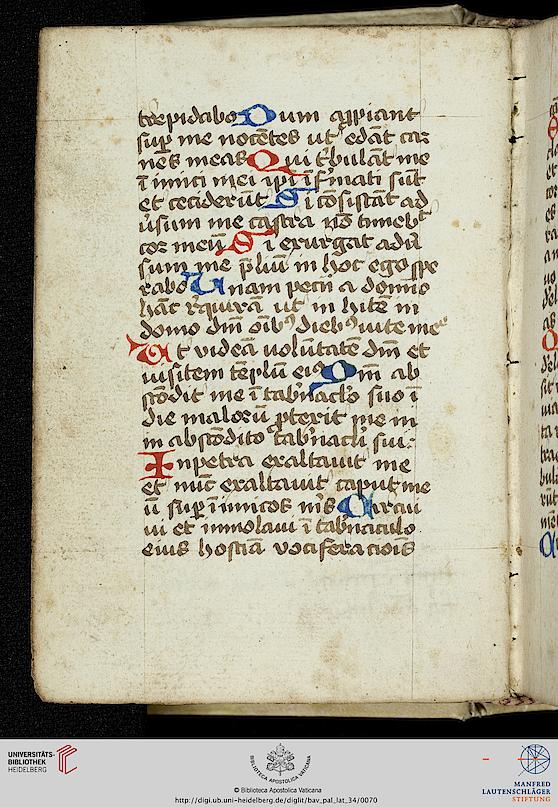 trepidabo Dum appiant
sup me nocētes ut edāt car
nēs meas Qui tͥbulāt me
īimici mei ipi īfͥmati sūt
et ceciderūt Si cōsistāt ad
ūsum me castra nō timebͭ
cor meū Si exurgat adū
sum me p̄liū in hoc ego spe
rabo Unam pecii a domio
hāc rͤquirā ut in hitē in
domo dm̄ oīb⁹ dieb⁹ uite me
Ut videā uolūtatē dm̄ et
uisitem tēplū ei⁹ Qm̄ ab
scōdit me ī tabͬnaclo suo ī
die malorū ꝓterit me in
in abscōdito tabͬnacli sui
In petra exaltauit me
et nūc exaltauit caput me
ū sup īimicos mīs Circu
ui et immolaui ī tabͬnaculo
eius hostiā vociferaciōis
UNIVERSITÄTS-
BIBLIOTHEK
HEIDELBERG
BIBLIOTECA APOSTOLICA VATICANA
© Biblioteca Apostolica Vaticana
http://digi.ub.uni-heidelberg.de/diglit/bav_pal_lat_34/0070
MANFRED
LAUTENSCHLÄGER
STIFTUNG